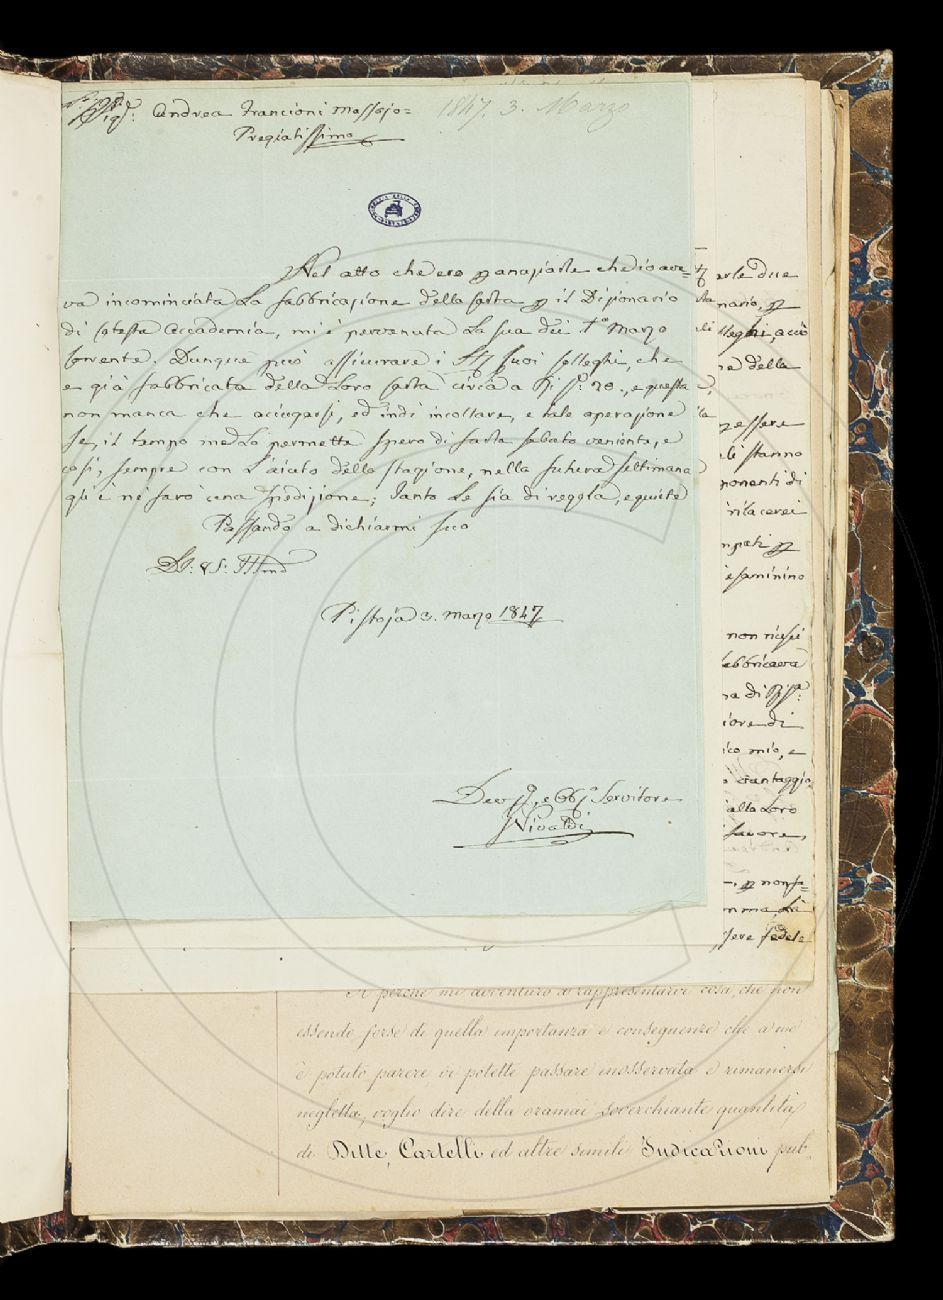 Andrea Francioni Massajo=
Pregiatissimo
1847. 3. Marzo
Nel atto che ero p anagiarle che io ave=
va incominciata La fabbricazione della Carta p il Dizionario
di cotesta Accademia, mi è pervenuta La sua dei 1º Marzo
Corrente. Dunque può assicurare i SSri suoi Colleghi, che
e già fabbricata della Loro Carta circa a Ri sse 20., e questa
non manca che aciugarsi, ed indi incollare, e tale operazione
se, il tempo me Lo permette spero di farla sabato venienta, e
cosi, sempre con L'aiuto della stagione, nella futura settimana
gli è ne farò una spedizione; Tanto Le sia di regola, e quiete
Passando a dichiarmi seco
D. V. S. Illma
Pistoja 3. Marzo 1847
Devmo, e Obbmo Servitore
Vivaldi
arle due
nario, p
lleghi, acciò
ne della
essere
li stanno
ponenti di
e saminino
non riesi
abbricava
na di
iore di
ico mio, e
vantaggio
alla Loro
favore,
p non
mma
sere fedele
A perchè mi avventuro a rappresentarvi cosa, che non
essendo forse di quella importanza e conseguenze che a me
è potuto parere, vi potette passare inosservata e rimanersi
neglella, voglio dire della oramai soverchiante quantità
di Ditte, Cartelli ed altre simili Indicazioni pub=